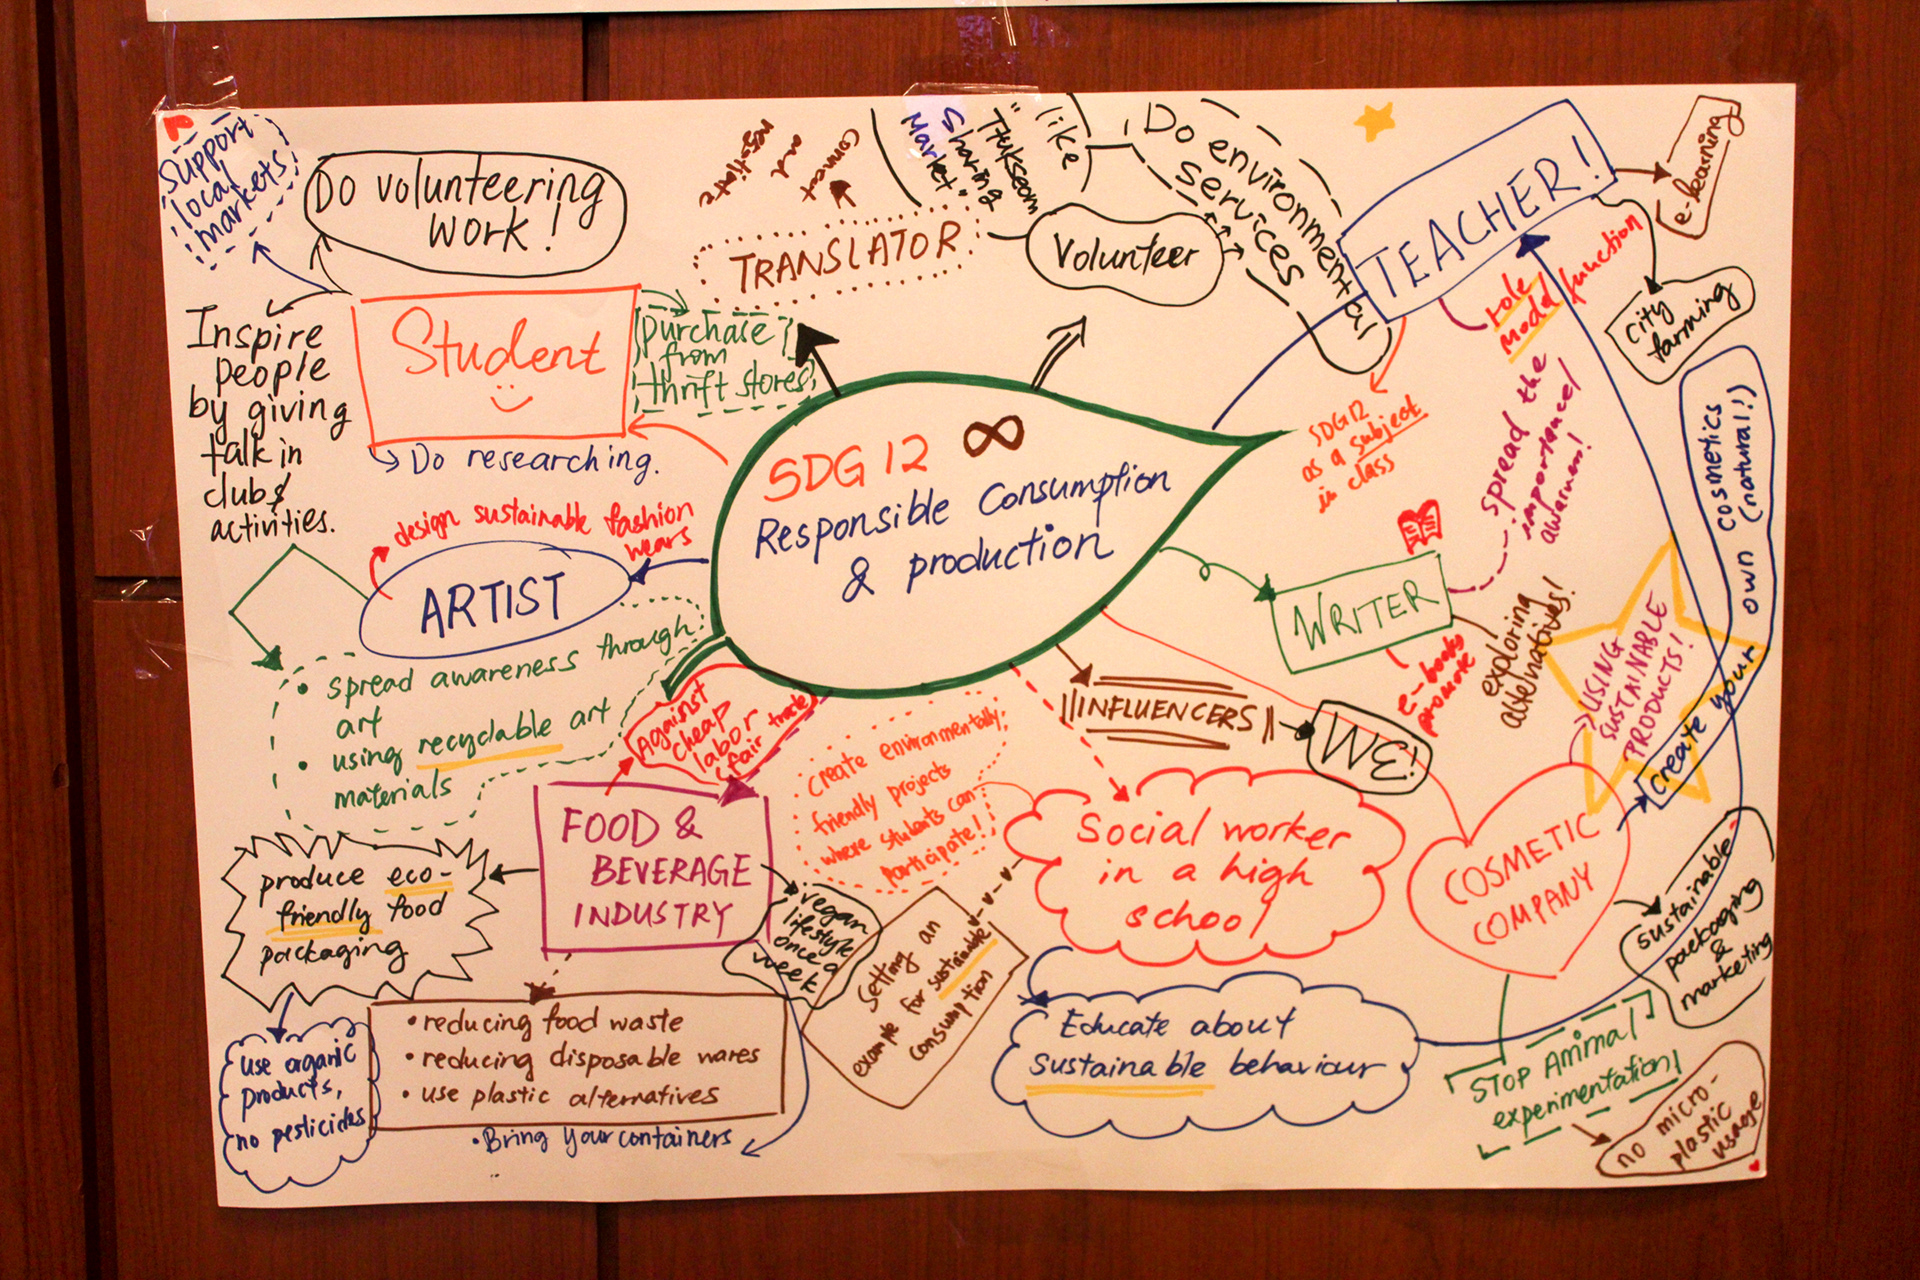 Support
local
markets
Do volunteering
work!
Connect
and
negotiate
TRANSLATOR
like
"Ttukseom
Sharing
Market"
Volunteer
Do environmental
services
TEACHER!
e-learning
city
farming
role
model function
SDG12
as a subject
in class
Student
purchase
from
thrift stores
Inspire
people
by giving
talk in
clubs
activities.
Do researching.
design sustainable fashion
wears
ARTIST
• spread awareness through
art
• using recyclable art
materials
SDG 12 ∞
Responsible Consumption
& production
WRITER
spread the
importance/
awarness!
exploring
alternatives!
e-books
promote
INFLUENCERS
WE!
USING
SUSTAINABLE
PRODUCTS!
create your own cosmetics
(natural!)
Against
cheap
labor
fair trade
FOOD &
BEVERAGE
INDUSTRY
produce eco-
friendly food
packaging
use organic
products,
no pesticides
• reducing food waste
• reducing disposable wares
• use plastic alternatives
• Bring your containers
vegan
lifestyle
once a
week
create environmentally
friendly projects
where students can
participate!
Setting an
example for sustainable
consumption
Social worker
in a high
school
Educate about
sustainable behaviour
COSMETIC
COMPANY
sustainable
packaging
&
marketing
STOP Animal
experimentation!
no micro-
plastic
usage